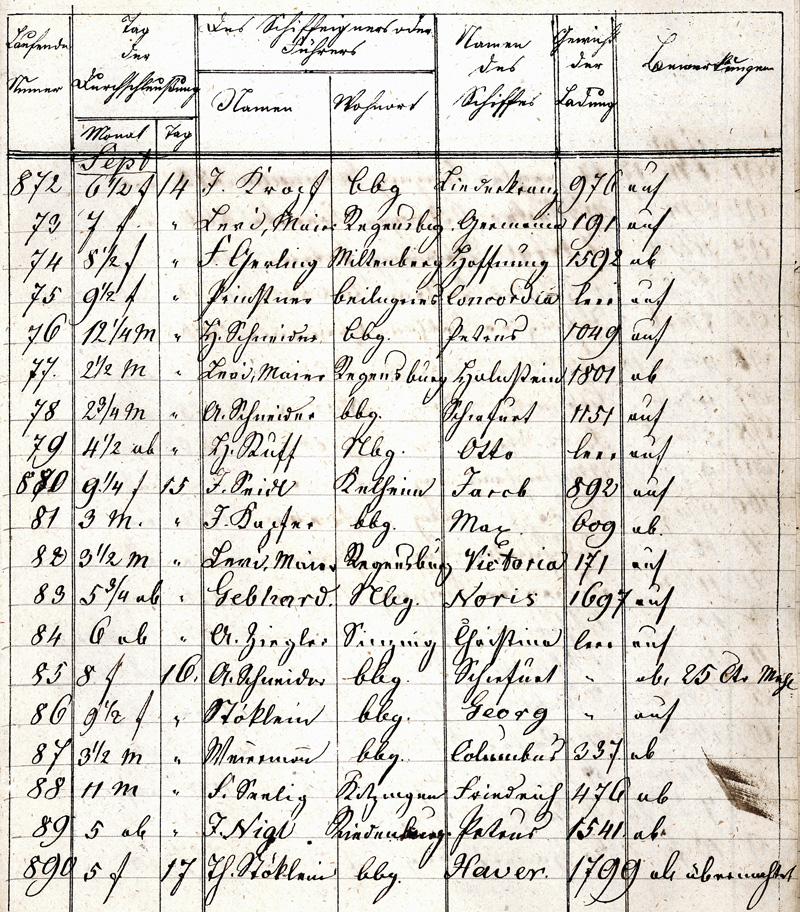 Laufende Numer | Tag der Durchschleußung | Des Schiffeigners oder Führers | Namen des Schiffes | Gewicht der Ladung | Bemerkungen
Monat | Tag | Namen | Wohnort
Sept
872 6 1/2 f 14 J. Kropf bbg Liederkranz 976 auf
73 7 f. " Levi, Maier Regensburg Germania 191 auf
74 8 1/2 f " F. Gerling Miltenberg Hoffnung 1592 ab
75 9 1/2 f " beilngries Concordia leer auf
76 12 1/4 M " H. Schneider bbg. Petrus 1049 auf
77. 2 1/2 M " Levi, Maier Regensburg 1801 ab
78 2 3/4 M " A. Schneider bbg. 1151 auf
79 4 1/2 ab " H. Ruff Nbg. Otto leer auf
880 9 1/4 f 15 J. Seidl Kelheim Jacob 892 auf
81 3 M. " J. Kapfer bbg. Max 609 ab.
82 3 1/2 M " Levi, Maier Regensburg Victoria 171 auf
83 5 3/4 ab " Gebhard. Nbg. Noris 1697 auf
84 6 ab " A. Ziegler Sinzing Christina leer auf
85 8 f 16. A. Schneider bbg. " ab. 25 Ctr Mehl
86 9 1/2 f " Stöklein bbg. Georg " auf
87 3 1/2 M " bbg. Columbus 337 ab
88 11 M " F. Seelig Kitzingen Friedrich 476 ab
89 5 ab " J. Nigl. Riedenburg. Petrus 1541 ab.
890 5 f 17 Th. Stöklein bbg. Xaver. 1799 ab übernachtet